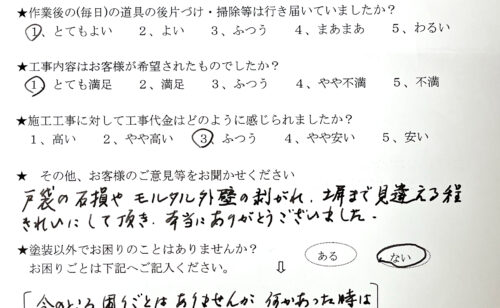 ★作業後の(毎日)の道具の後片づけ・掃除等は行き届いていましたか?
1、とてもよい 2、よい 3、ふつう 4、まあまあ 5、わるい
★工事内容はお客様が希望されたものでしたか?
1、とても満足 2、満足 3、ふつう 4、やや不満 5、不満
★施工工事に対して工事代金はどのように感じられましたか?
1、高い 2、やや高い 3、ふつう 4、やや安い 5、安い
★ その他、お客様のご意見等をお聞かせください
戸袋の破損や モルタル外壁の剥がれ、塀まで見違える程
きれいにして頂き、本当にありがとうございました。
★塗装以外でお困りのことはありませんか? ある ない
お困りごとは下記へご記入ください。 ⇩
今のところ困りごとはありませんが、何かあった時は